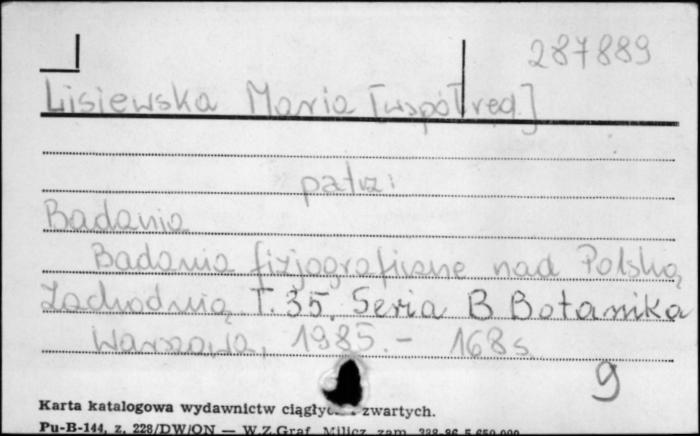 287889
Lisiewska Maria [współred.]
patrz:
Badania
Badania fizjograficzne nad Polską
Zachodnią T. 35. Seria B Botanika
Warszawa, 1985. - 168 s.
9
Karta katalogowa wydawnictw zwartych.
Pu-B-144, z. 228/DW/ON — W.Z.Graf. Milicz, zam.